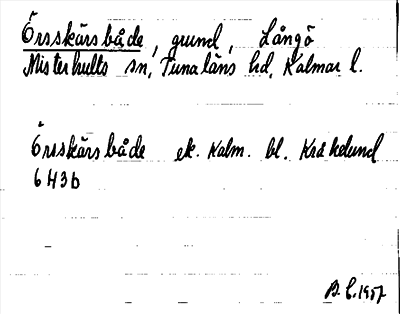 Örsskärsbåde, grund, Långö
Misterhults sn, Tunaläns hd, Kalmar l.
Örsskärsbåde ek. Kalm. bl. Kråkelund
6H3b
B.C. 1957